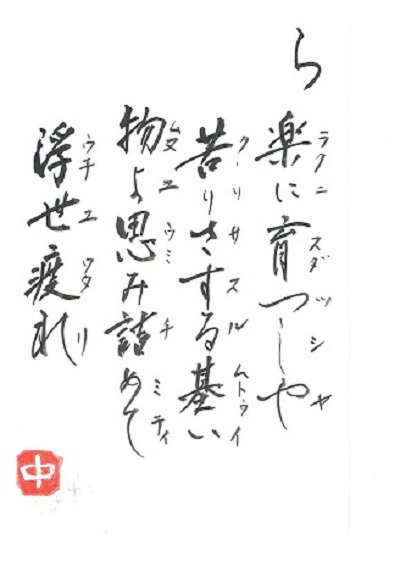 ら
楽に育つしや
ラクニ スダツシヤ
苦りさする基い
クリサスル ムトゥイ
物よ思み詰めて
ムヌユ ウミチミティ
浮世渡れ
ウチユワタリ
中